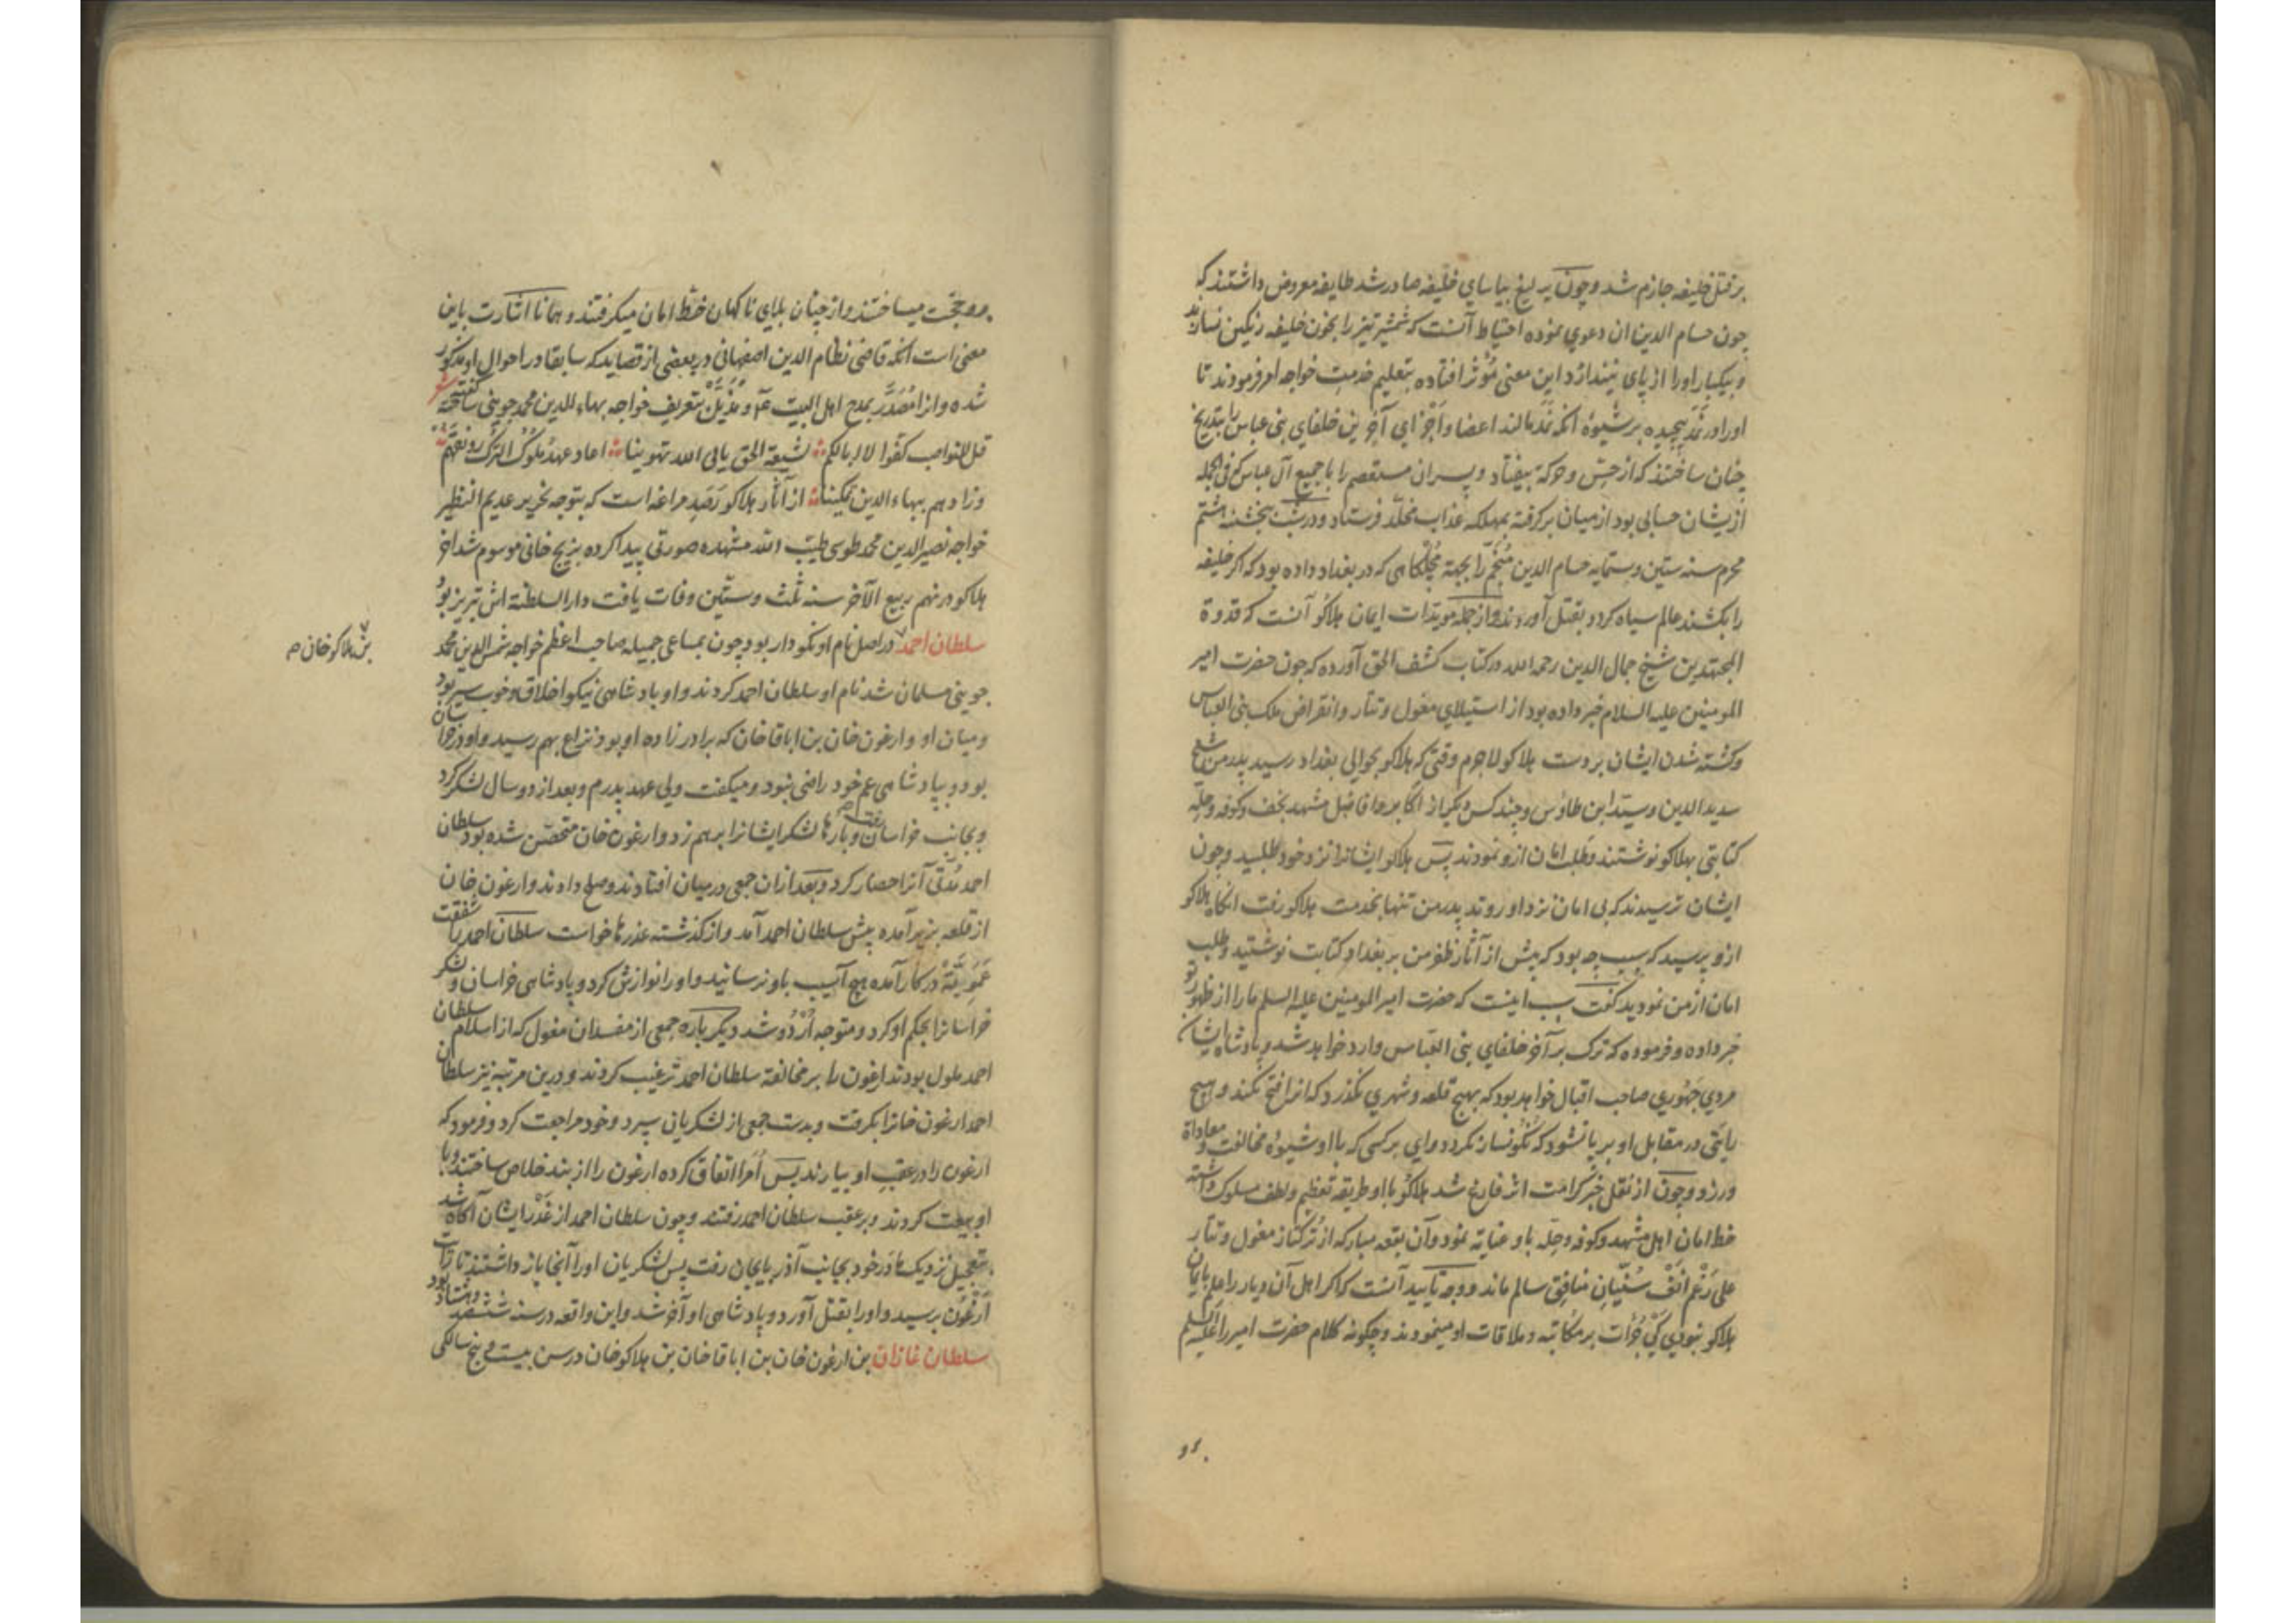 بر قتل خلیفه جازم شد و چون یرلیغ بیاسای خلیفه صادر شد طایفه معروض داشتند که
چون حسام الدین ان دعوی نموده احتیاط آنست که شمشیر تیز را بخون خلیفه رنگین نسازند
و بیکبار او را از پای نیندازد این معنی مؤثر افتاده بتعلیم خدمت خواجه امر فرمودند تا
او را در نمد پیچیده بر شیوه انکه نمد مالند اعضا و اجزای آخرین خلفای بنی عباس را بتدریج
چنان ساختند که از حس و حرکة بیفتاد و پسران مستعصم را با جمیع آل عباس که فی الجمله
ازیشان حسابی بود از میان برگرفته بمهلکه عذاب مخلد فرستاد و در شب پنجشنبه هشتم
محرم سنه ستین و ستمایه حسام الدین منجم را بجهة مچلکاهی که در بغداد داده بود که اگر خلیفه
را بکشند عالم سیاه کردد بقتل آوردند و از جمله مویدات ایمان هلاکو آنست که قدوة
المجتهدین شیخ جمال الدین رحمه الله در کتاب کشف الحق آورده که چون حضرت امیر
المومنین علیه السلام خبر داده بود از استیلای مغول و تتار و انقراض ملک بنی العباس
و کشته شدن ایشان بر دست هلاکو لاجرم وقتی که هلاکو بحوالی بغداد رسید پدر من شیخ
سدید الدین و سید ابن طاوس و چند کس دیگر از اکابر و افاضل مشهد نجف و کوفه و حله
کتابتی بهلاکو نوشتند و طلب امان ازو نمودند پس هلاکو ایشانرا نزد خود طلبید و چون
ایشان ترسیدند که بی امان نزد او روند پدر من تنها بخدمت هلاکو رفت انکاه هلاکو
ازو پرسید که سبب چه بود که پیش از آثار ظفر من بر بغداد کتابت نوشتید و طلب
امان از من نمودید گفت سبب اینست که حضرت امیر المومنین علیه السلم ما را از ظهور تو
خبر داده و فرموده که ترک بر آخر خلفای بنی العباس وارد خواهد شد و پادشاه ایشان
مردی جهوری صاحب اقبال خواهد بود که بهیچ قلعه و شهری نگذرد که انرا فتح نکند و هیچ
رایتی در مقابل او بر پا نشود که نگونسار نگردد وای بر کسی که با او شیوه مخالفت و معاداة
ورزد و چون از نقل خبر کرامت اثر فارغ شد هلاکو با او طریقه تعظیم و لطف مسلوک داشته
خط امان اهل مشهد و کوفه و حله باو عنایة نمود و آن بقعه مبارکه از ترکتاز مغول و تتار
علی رغم انف سنیان منافق سالم ماند و وجه تایید آنست که اگر اهل آن دیار را علم بایمان
هلاکو نبودی کی جرات بر مکاتبه و ملاقات او مینمودند و چگونه کلام حضرت امیر را علیه السلم
و حجت میساختند و از چنان بلای ناکهان خط امان میگرفتند و همانا اشارت باین
معنی است انکه قاضی نظام الدین اصفهانی در بعضی از قصاید که سابقا در احوال او مذکور
شده و انرا مصدر بمدح اهل البیت ع و مذیل بتعریف خواجه بهاء الدین محمد جوینی ساخته گفته شعر
قل للنواصب کفوا لا ابا لکم لشیعة الحق یابی الله تهوینا اعاد عهد ملوک الترک رونقهم
وزادهم ببهاء الدین تمکینا از آثار هلاکو رصد مراغه است که بتوجه نحریر عدیم النظیر
خواجه نصیر الدین محمد طوسی طیب الله مشهده صورتی پیدا کرده بزیج خانی موسوم شد اخر
هلاکو در نهم ربیع الآخر سنه ثلث و ستین وفات یافت دار السلطنة اش تبریز بود
سلطان احمد در اصل نام او نکودار بود چون بمساعی جمیله صاحب اعظم خواجه شمس الدین محمد
بن هلاکو خان
جوینی مسلمان شد نام او سلطان احمد کردند و او پادشاهی نیکو اخلاق و خوب سیر بود
و میان او و ارغون خان بن اباقا خان که برادر زاده او بود نزاع بهم رسید و او در خراسان
بود و بپادشاهی عم خود راضی نبود و میگفت ولی عهد پدرم و بعد از دو سال لشکر کرد
و بجانب خراسان رفت و بارها لشکر ایشانرا برهم زد و ارغون خان متحصن شده بود سلطان
احمد مدتی آنرا حصار کرد و بعد ازان جمعی درمیان افتادند و صلح دادند و ارغون خان
از قلعه بزیر آمده پیش سلطان احمد آمد و از گذشته عذرها خواست سلطان احمد را شفقت
عمویت در کار آمده هیچ آسیب باو نرسانید و او را نوازش کرد و پادشاهی خراسان و لشکر
خراسانرا بحکم او کرد و متوجه اردو شد دیگر باره جمعی از مفسدان مغول که از اسلام سلطان
احمد ملول بودند ارغون را بر مخالفة سلطان احمد ترغیب کردند و درین مرتبه نیز سلطان
احمد ارغون خانرا بگرفت و بدست جمعی از لشکریان سپرد و خود مراجعت کرد و فرمود که
ارغون را در عقب او بیارند پس امرا اتفاق کرده ارغون را از بند خلاص ساختند و با
او بیعت کردند و بر عقب سلطان احمد رفتند و چون سلطان احمد از غدر ایشان آگاه شد
بتعجیل نزدیک مادر خود بجانب آذربایجان رفت پس لشکریان او را آنجا باز داشتند تا رایات
ارغون برسید و او را بقتل آورد و پادشاهی او آخر شد و این واقعه در سنه ششصد و هشتاد بود
سلطان غازان بن ارغون خان بن اباقا خان بن هلاکو خان در سن بیست و پنج سالگی